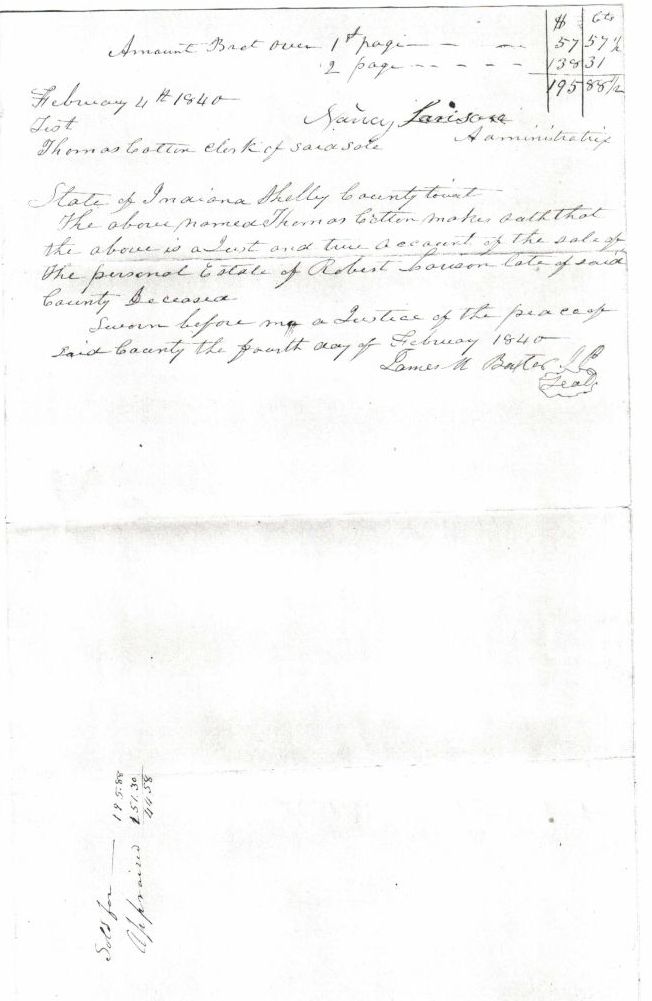 $ Cts
Amount Brot over 1st page - - - 57 57 1/2
2 page - - - - 138 31
195 88 1/2
February 4th 1840
Nancy Larison
Test
Administratrix
Thomas Cotton Clerk of said sale
State of Indiana Shelby County towit
The above named Thomas Cotton makes oath that
the above is a Just and true account of the sale of
the personal Estate of Robert Larison late of said
County Deceased
Sworn before me a Justice of the peace of
said County the fourth day of February 1840
James M Baxter J P
Seal
Sold for — 195.88
Appraised 151.30
44 58